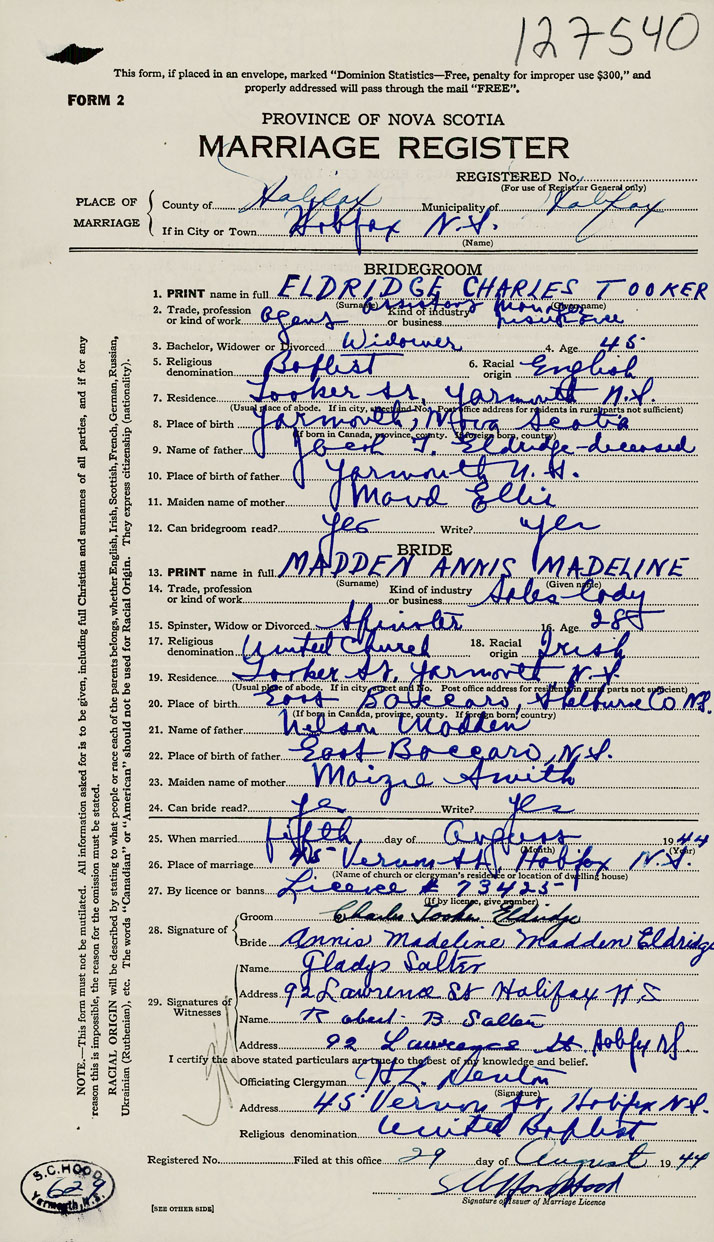 127540
This form, if placed in an envelope, marked "Dominion Statistics—Free, penalty for improper use $300," and
properly addressed will pass through the mail "FREE".
FORM 2
PROVINCE OF NOVA SCOTIA
MARRIAGE REGISTER
REGISTERED No.
(For use of Registrar General only)
PLACE OF MARRIAGE
County of Halifax Municipality of Halifax
If in City or Town Halifax N.S.
(Name)
BRIDEGROOM
1. PRINT name in full ELDRIDGE CHARLES TOOKER
(Surname) (Given name)
2. Trade, profession or kind of work Agens Assistors Manager Kind of industry or business Insurance
3. Bachelor, Widower or Divorced Widower 4. Age 45
5. Religious denomination Baptist 6. Racial origin English
7. Residence Tooker St. Yarmouth N.S.
(Usual place of abode. If in city, street and No. Post office address for residents in rural parts not sufficient)
8. Place of birth Yarmouth, Nova Scotia
(If born in Canada, province, county. If foreign born, country)
9. Name of father T. Eldridge-deceased
10. Place of birth of father Yarmouth N.S.
11. Maiden name of mother Maud Ellis
12. Can bridegroom read? Yes Write? Yes
BRIDE
13. PRINT name in full MADDEN ANNIS MADELINE
(Surname) (Given name)
14. Trade, profession or kind of work Kind of industry or business Sales Lady
15. Spinster, Widow or Divorced Spinster 16. Age 28
17. Religious denomination United Church 18. Racial origin Irish
19. Residence Tooker St. Yarmouth N.S.
(Usual place of abode. If in city, street and No. Post office address for residents in rural parts not sufficient)
20. Place of birth East Baccaro, Shelburne Co N.S.
(If born in Canada, province, county. If foreign born, country)
21. Name of father Nelson Madden
22. Place of birth of father East Baccaro, N.S.
23. Maiden name of mother Maizie Smith
24. Can bride read? Yes Write? Yes
25. When married fifth day of August 1944
(Month) (Year)
26. Place of marriage 45 Vernon St, Halifax N.S.
(Name of church or clergyman's residence or location of dwelling house)
27. By licence or banns Licence # 73425
(If by license, give number)
28. Signature of Groom Charles Tooker Eldridge
Bride Annis Madeline Madden Eldridge
29. Signatures of Witnesses
Name Gladys Salter
Address 92 Lawrence St Halifax N S
Name Robert B. Salter
Address 92 Lawrence St. Halifax NS
I certify the above stated particulars are true to the best of my knowledge and belief.
Officiating Clergyman H.L. Denton
(Signature)
Address 45 Vernon St, Halifax N.S.
Religious denomination United Baptist
Registered No. Filed at this office 29 day of August 1944
Signature of Issuer of Marriage Licence
[SEE OTHER SIDE]
S. C. HOOD
629
Yarmouth, N.S.
NOTE.—This form must not be mutilated. All information asked for is to be given, including full Christian and surnames of all parties, and if for any
reason this is impossible, the reason for the omission must be stated.
RACIAL ORIGIN will be described by stating to what people or race each of the parents belongs, whether English, Irish, Scottish, French, German, Russian,
Ukrainian (Ruthenian), etc. The words "Canadian" or "American" should not be used for Racial Origin. They express citizenship (nationality).